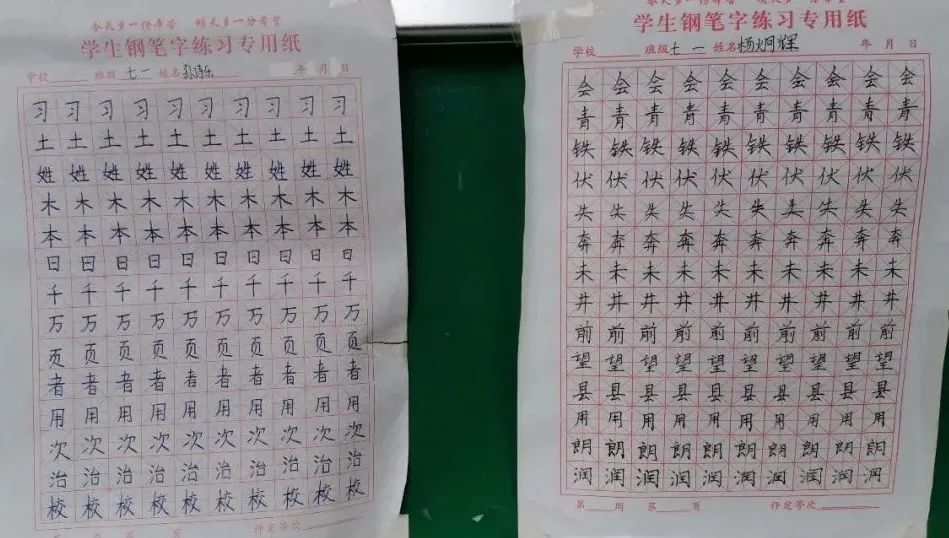 今天多一份辛苦 明天多一份希望
学生钢笔字练习专用纸
学校 班级 七一 姓名 年 月 日
习习习习习习习习习习
土土土土土土土土土土
姓姓姓姓姓姓姓姓姓姓
木木木木木木木木木木
本本本本本本本本本本
日日日日日日日日日日
千千千千千千千千千千
万万万万万万万万万万
页页页页页页页页页页
者者者者者者者者者者
用用用用用用用用用用
次次次次次次次次次次
治治治治治治治治治治
校校校校校校校校校校
第 周 第 页 评定等次
今天多一份辛苦 明天多一份希望
学生钢笔字练习专用纸
学校 班级 七一 姓名 杨炯辉 年 月 日
会会会会会会会会会会
青青青青青青青青青青
铁铁铁铁铁铁铁铁铁铁
伏伏伏伏伏伏伏伏伏伏
失失失失失失失失失失
奔奔奔奔奔奔奔奔奔奔
未未未未未未未未未未
井井井井井井井井井井
前前前前前前前前前前
望望望望望望望望望望
县县县县县县县县县县
用用用用用用用用用用
朗朗朗朗朗朗朗朗朗朗
润润润润润润润润润润
第 周 第 页 评定等次